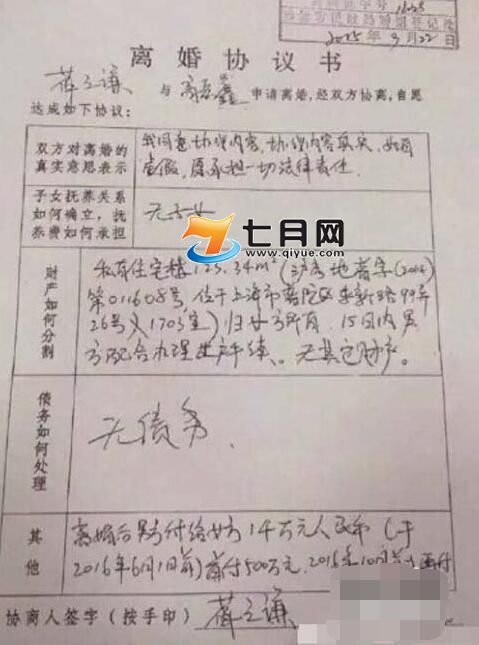 2015年9月22日
离婚协议书
与
申请离婚,经双方协商,自愿
达成如下协议:
双方对离婚的
真实意思表示
我同意协议内容,协议内容真实,如有
虚假,愿承担一切法律责任.
子女抚养关系
如何确立,抚
养费如何承担
无子女
七月网
www.qiyue.com
财产如何分割
私有住宅楼123.34m²(沪房地普字(2014)
第011608号 位于上海市普陀区 99弄
26号 1703室)归女方所有,15日内男
方配合办理过户手续。无其它财产。
债务如何处理
无债务.
其他
离婚后男方付给女方 万元人民币(于
2016年6月1日前)首付500万元,2016年10月
协商人签字(按手印)